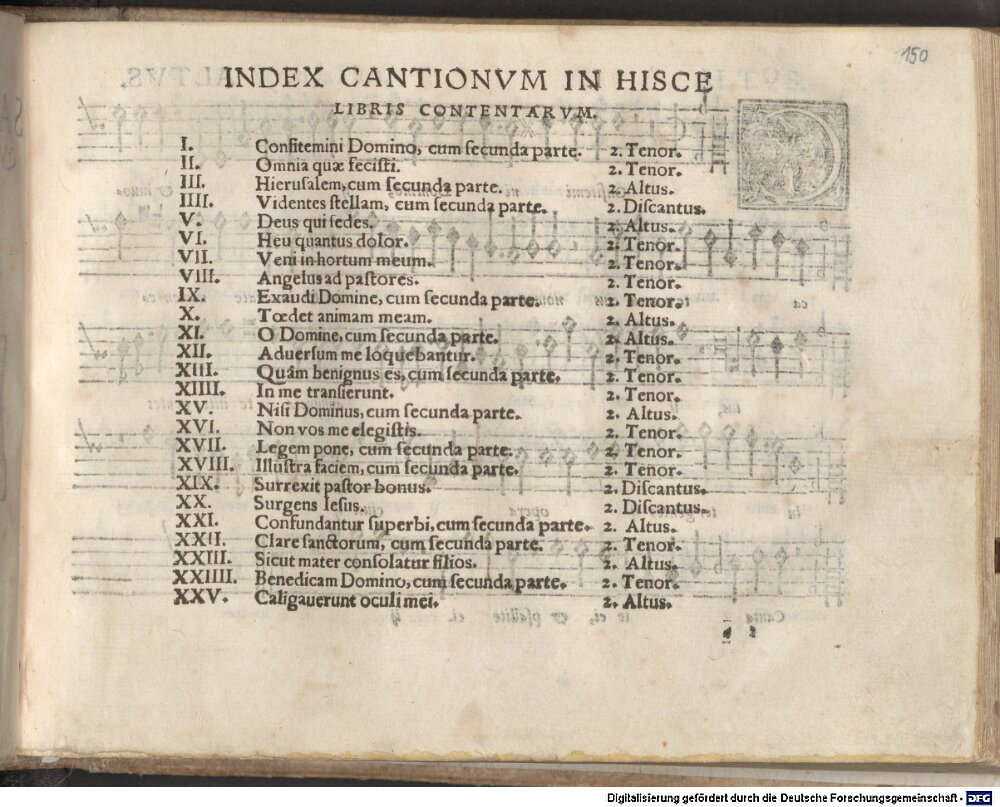 150
INDEX CANTIONVM IN HISCE
LIBRIS CONTENTARVM.
I. Confitemini Domino, cum ſecunda parte. 2. Tenor.
II. Omnia quæ feciſti. 2. Tenor.
III. Hieruſalem, cum ſecunda parte. 2. Altus.
IIII. Videntes ſtellam, cum ſecunda parte. 2. Diſcantus.
V. Deus qui ſedes. 2. Altus.
VI. Heu quantus dolor. 2. Tenor.
VII. Veni in hortum meum. 2. Tenor.
VIII. Angelus ad paſtores. 2. Tenor.
IX. Exaudi Domine, cum ſecunda parte. 2. Tenor.
X. Tœdet animam meam. 2. Altus.
XI. O Domine, cum ſecunda parte. 2. Altus.
XII. Aduerſum me loquebantur. 2. Tenor.
XIII. Quâm benignus es, cum ſecunda parte. 2. Tenor.
XIIII. In me tranſierunt. 2. Tenor.
XV. Niſi Dominus, cum ſecunda parte. 2. Altus.
XVI. Non vos me elegiſtis. 2. Tenor.
XVII. Legem pone, cum ſecunda parte. 2. Tenor.
XVIII. Illuſtra faciem, cum ſecunda parte. 2. Tenor.
XIX. Surrexit paſtor bonus. 2. Diſcantus.
XX. Surgens Ieſus. 2. Diſcantus.
XXI. Confundantur ſuperbi, cum ſecunda parte. 2. Altus.
XXII. Clare ſanctorum, cum ſecunda parte. 2. Tenor.
XXIII. Sicut mater conſolatur filios. 2. Altus.
XXIIII. Benedicam Domino, cum ſecunda parte. 2. Tenor.
XXV. Caligauerunt oculi mei. 2. Altus.
Digitalisierung gefördert durch die Deutsche Forschungsgemeinschaft - DFG